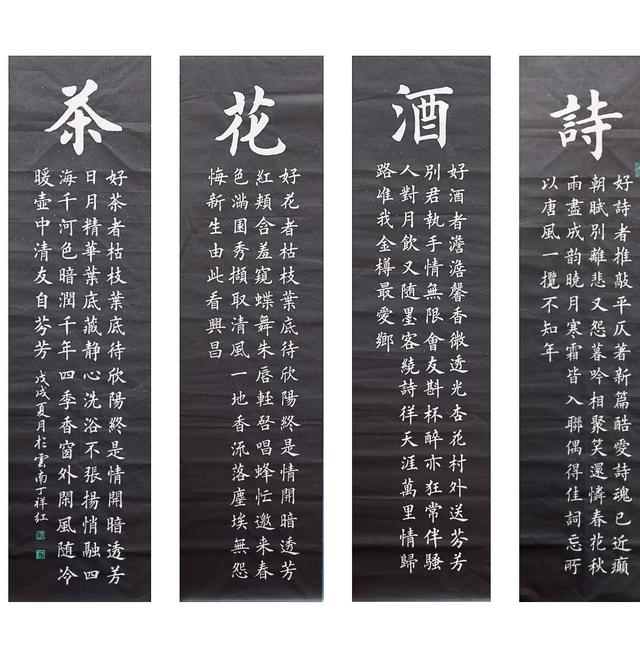 詩
好詩者推敲平仄著新篇酷愛詩魂已近癲
朝賦別離悲又怨暮吟相聚笑還憐春花秋
雨盡成韵曉月寒霜皆入聯偶得佳詞忘所
以唐風一攬不知年
酒
好酒者澹澹馨香微透光杏花村外送芬芳
別君執手情無限會友斟杯醉亦狂常伴騷
人對月飲又隨墨客繞詩徉天涯萬里情歸
路惟我金樽最愛鄉
花
好花者枯枝葉底待欣陽終是情開暗透芳
紅頰含羞窺蝶舞朱唇輕啓唱蜂忙邀来春
色滿園秀擷取清風一地香流落塵埃無怨
悔新生由此看興昌
茶
好茶者枯枝葉底待欣陽終是情開暗透芳
日月精華葉底藏靜心洗浴不張揚悄融四
海千河色暗潤千年四季香窗外閑風隨冷
暖壺中清友自芬芳
戊戌夏月於雲南丁祥紅